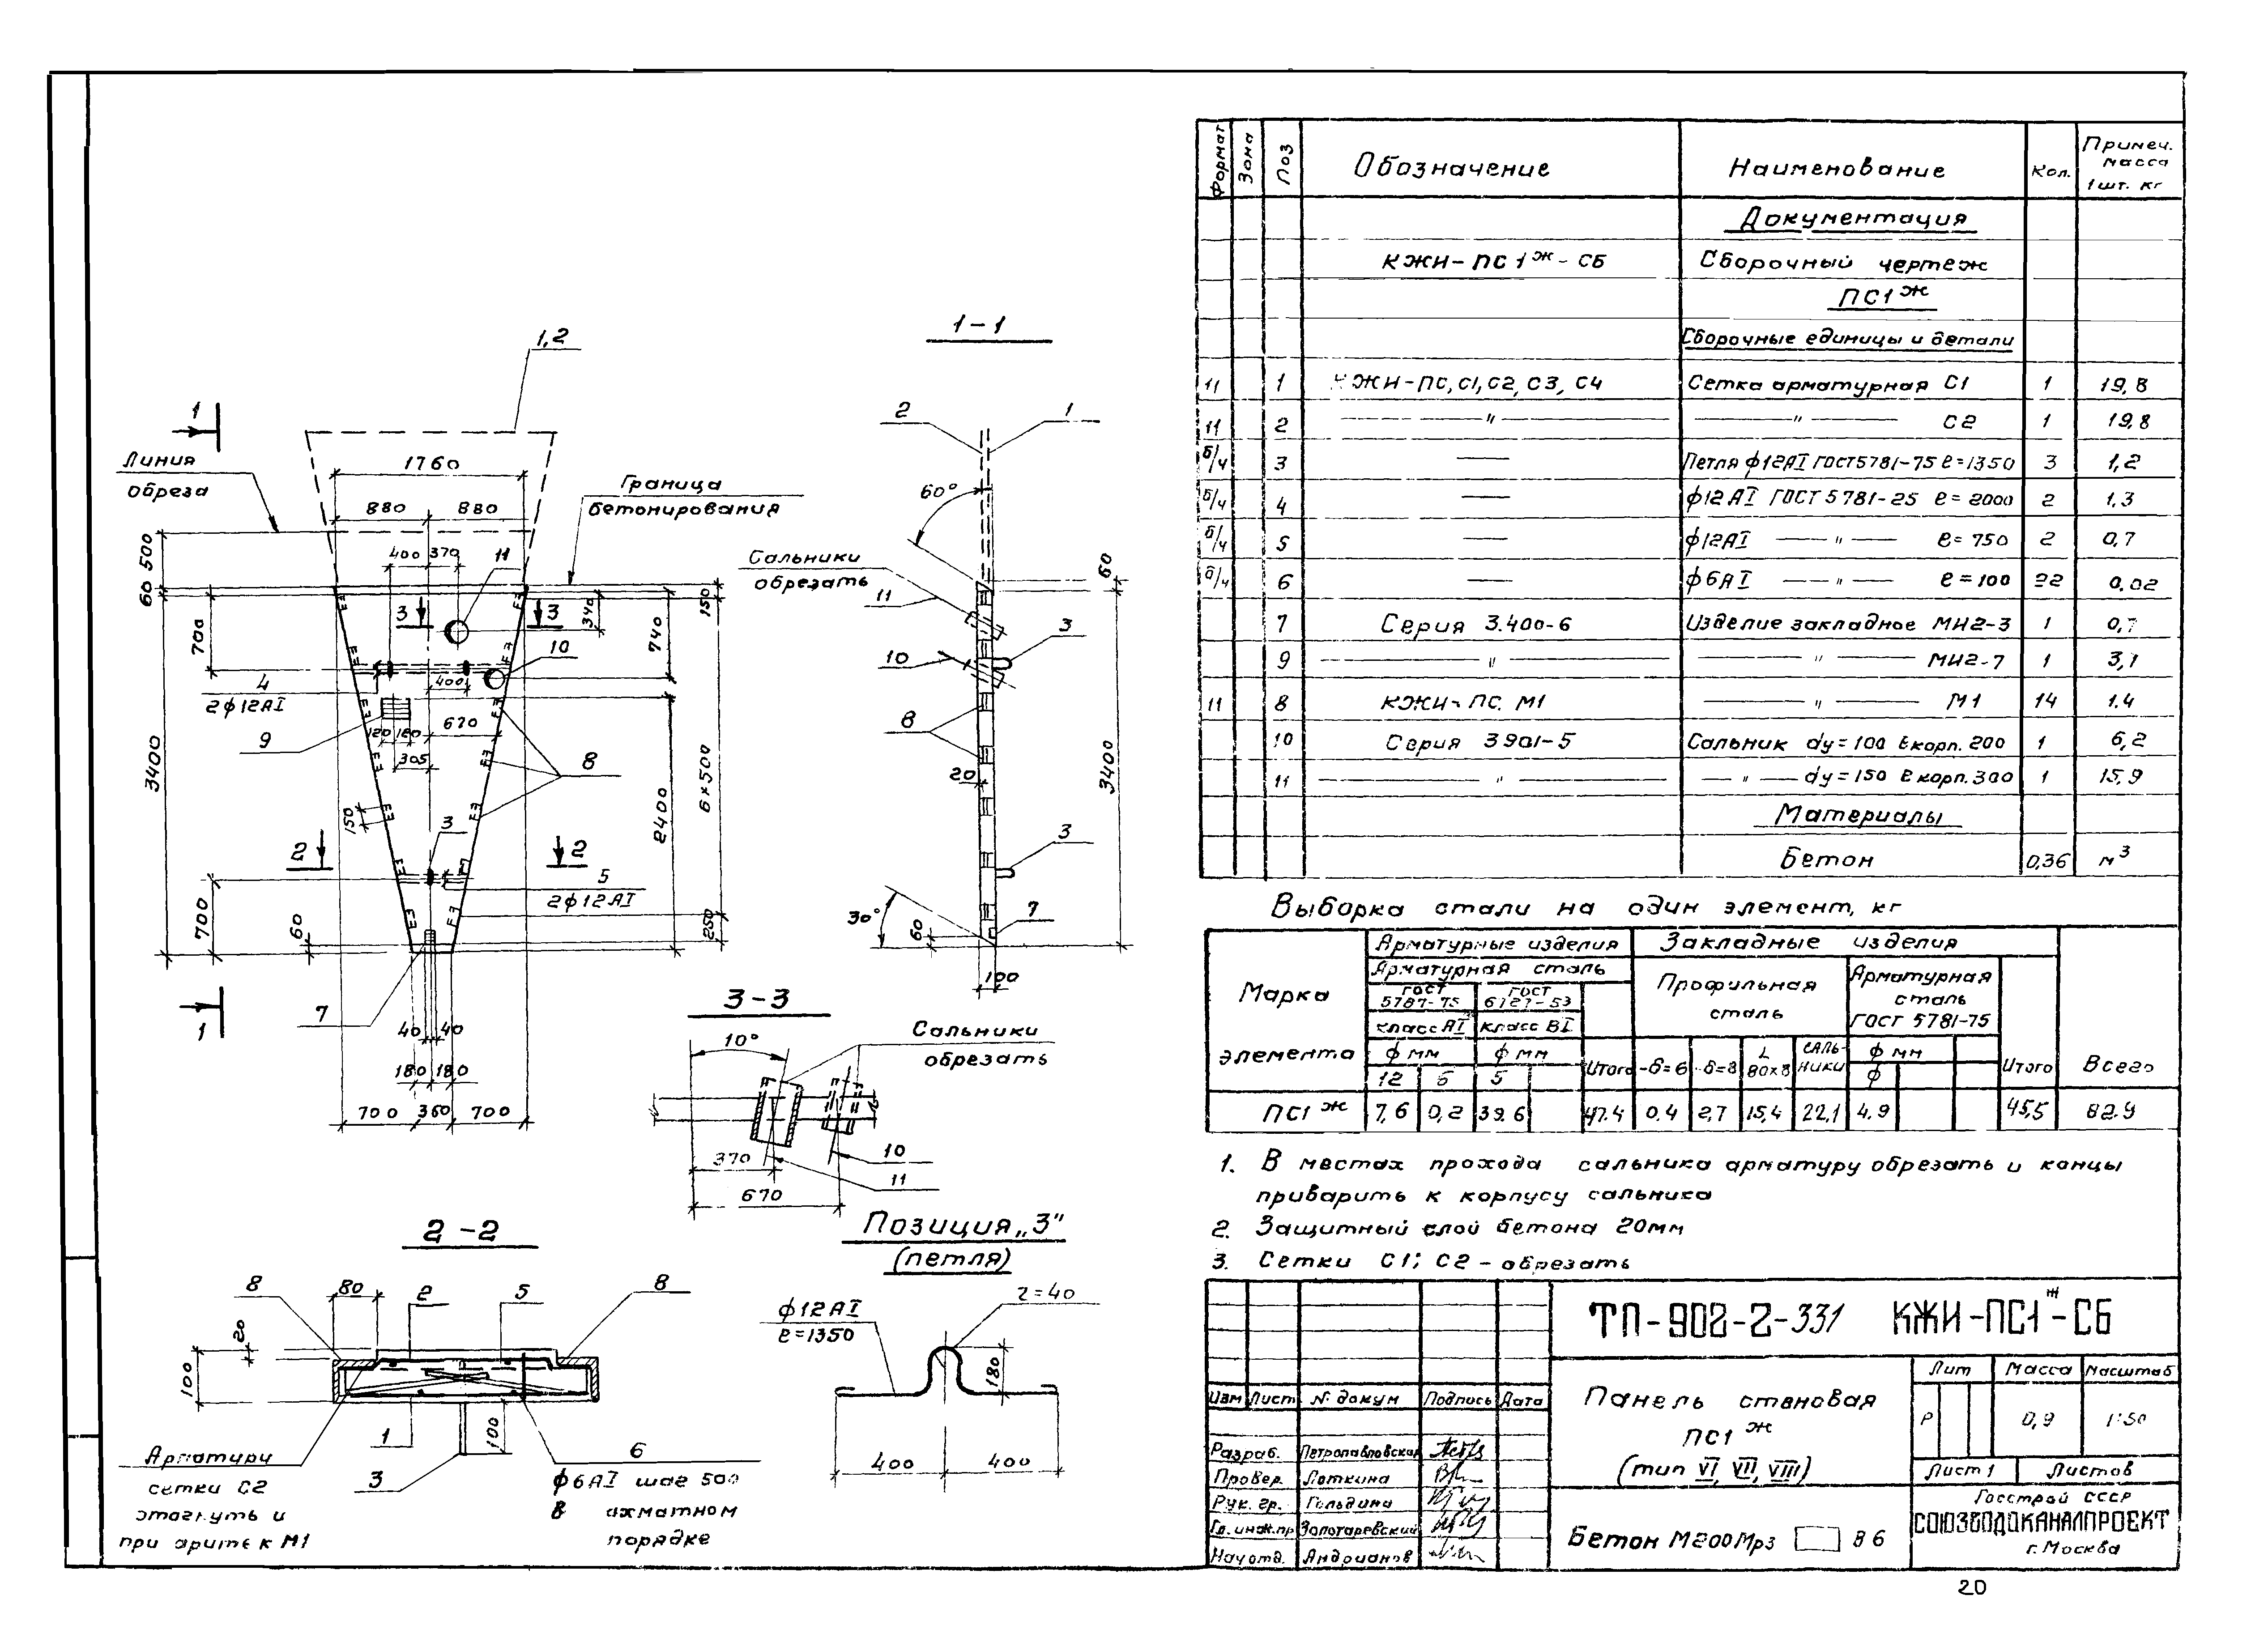 1,2
1
Линия
обреза
1760
Граница
бетонирования
880 880
400 370 11
500
60
700
3400
3 3
340
150
740
10
4
2ф12АI
400
9
670
120 120
305
8
150
2400
6×500
3
2 2
5
2ф12АI
700
60
250
1
7
40 40
180 180
700 360 700
1-1
2 1
60°
Сальники
обрезать
11
60
3
10
8
20
3400
3
30°
60
7
100
3-3
Сальники
обрезать
10°
370
10
11
670
2-2
8 80 2 5 8
20
100
1
3
100
6
ф6АI шаг 500
в ахматном
порядке
Арматуру
сетки С2
отогнуть и
при арить к М1
Позиция „3"
(петля)
ф12АI
ℓ=1350
r=40
180
400 400
Формат Зона Поз Обозначение Наименование Кол. Примеч. масса 1шт. кг
Документация
КЖИ-ПС1ж-СБ Сборочный чертеж
ПС1ж
Сборочные единицы и детали
11 1 КЖИ-ПС,С1,С2,С3,С4 Сетка арматурная С1 1 19,8
11 2 — " — — " — С2 1 19,8
б/ч 3 — Петля ф12АI ГОСТ5781-75 ℓ=1350 3 1,2
б/ч 4 — ф12АI ГОСТ5781-25 ℓ=2000 2 1,3
б/ч 5 — ф12АI — " — ℓ=750 2 0,7
б/ч 6 — ф6АI — " — ℓ=100 22 0,02
7 Серия 3.400-6 Изделие закладное МН2-3 1 0,7
9 — " — — " — МН2-7 1 3,1
11 8 КЖИ-ПС.М1 — " — М1 14 1.4
10 Серия 3901-5 Сальник dу=100 ℓкорп.200 1 6,2
11 — " — — " — dу=150 ℓкорп.300 1 15,9
Материалы
Бетон 0,36 м³
Выборка стали на один элемент, кг
Марка элемента
Арматурные изделия Закладные изделия
Арматурная сталь Профильная сталь Арматурная сталь ГОСТ 5781-75
ГОСТ 5787-75 ГОСТ 6727-53
класс АI класс ВI
ф мм ф мм Итого -δ=6 -δ=8 L 80×8 сальники ф мм Итого Всего
12 6 5 ф
ПС1ж 7,6 0,2 39.6 47.4 0.4 2,7 15,4 22,1 4.9 45,5 82.9
1. В местах прохода сальника арматуру обрезать и концы
приварить к корпусу сальника
2. Защитный слой бетона 20мм
3. Сетки С1; С2 - обрезать
ТП-902-2-331 КЖИ-ПС1ж-СБ
Изм Лист № докум Подпись Дата
Разраб. Петропавловская
Провер. Латкина
Рук. гр. Гольдина
Гл. инж.пр Золотаревский
Нач отд. Андрианов
Панель стеновая
ПС1ж
(тип VI, VII, VIII)
Лит Масса Масштаб
Р 0,9 1:50
Лист 1 Листов
Бетон М200Мрз В6
Госстрой СССР
СОЮЗВОДОКАНАЛПРОЕКТ
г. Москва
20